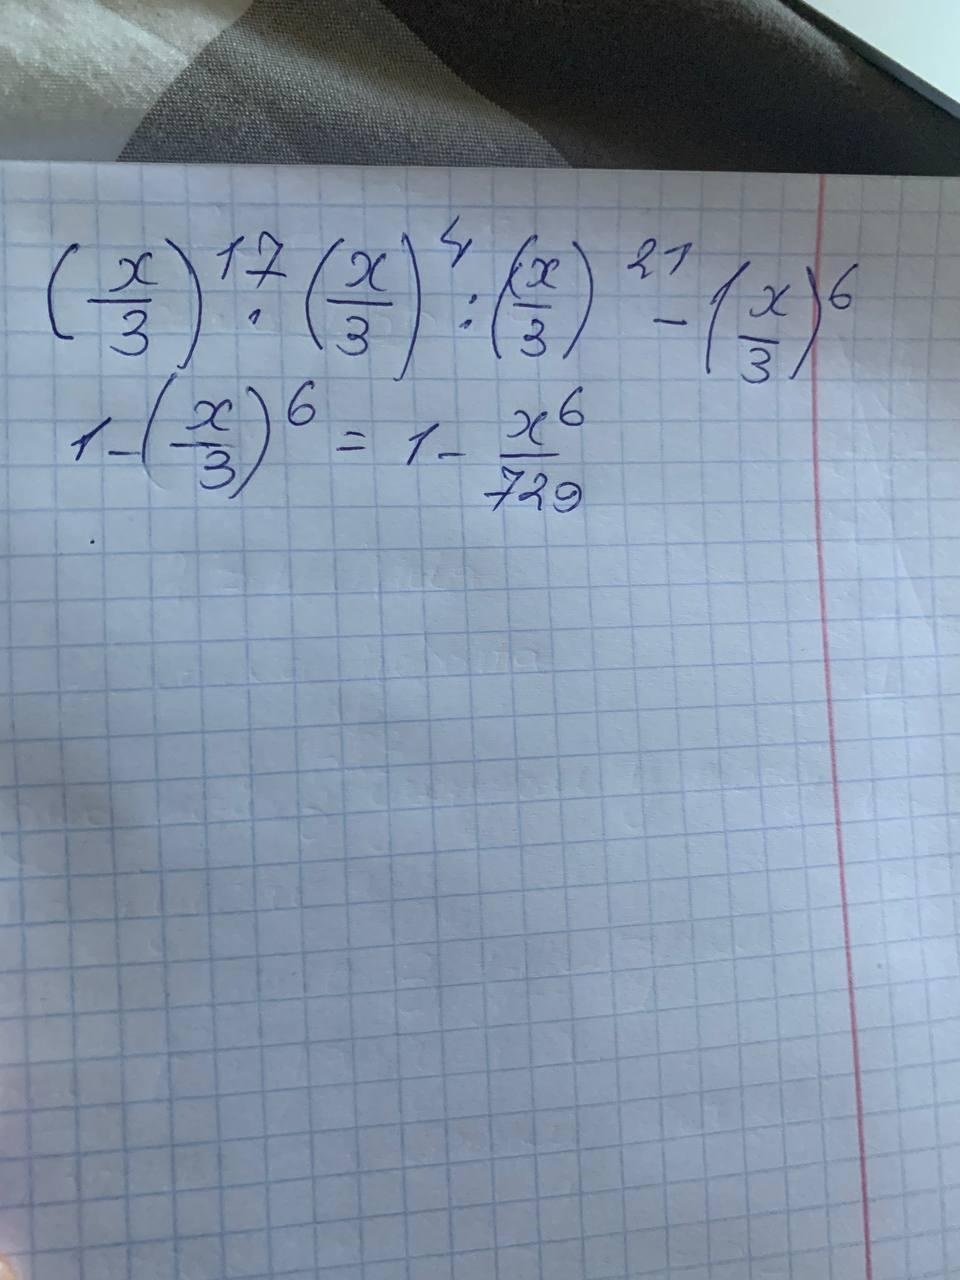 (x/3)^17 · (x/3)^4 : (x/3)^21 - (x/3)^6
1 - (x/3)^6 = 1 - x^6/729